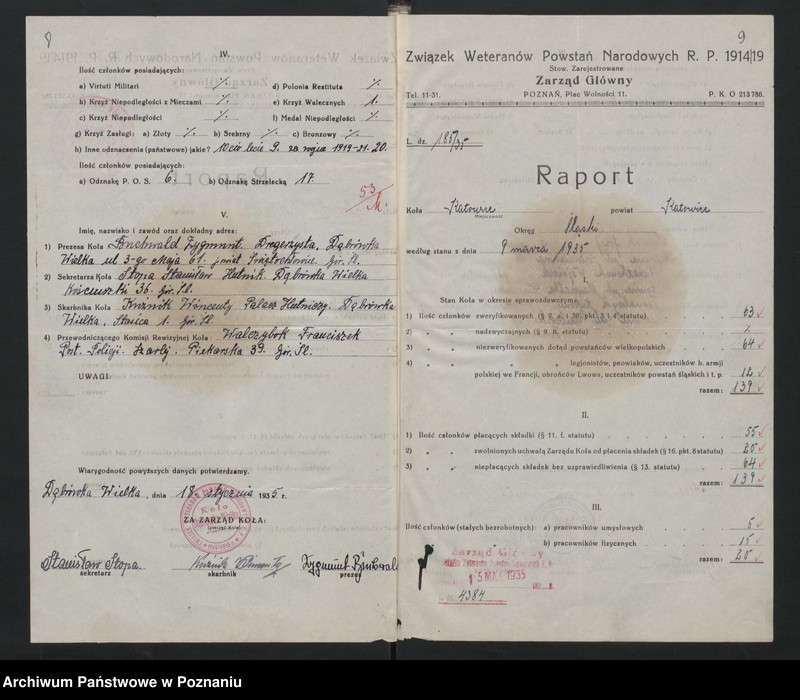 8
IV.
Ilość członków posiadających:
a) Virtuti Militari ·/. d) Polonia Restituta ·/.
b) Krzyż Niepodległości z Mieczami ·/. e) Krzyż Walecznych 1.
c) Krzyż Niepodległości ·/. f) Medal Niepodległości ·/.
g) Krzyż Zasługi: a) Złoty ·/. b) Srebrny ·/. c) Bronzowy ·/.
h) Inne odznaczenia (państwowe) jakie? 10cio lecie 9. za wojnę 1919-21. 20.
Ilość członków posiadających:
a) Odznakę P. O. S. 6. b) Odznakę Strzelecką 17.
53
M.
V.
Imię, nazwisko i zawód oraz dokładny adres:
1) Prezesa Koła Zygmunt Drogerzysta, Dąbrówka
Wielka ul 3-go Maja 61. powiat Świętochłowice. Gór. Śl.
2) Sekretarza Koła Stopa Stanisław Hutnik Dąbrówka Wielka
Kościuszki 36. Gór. Śl.
3) Skarbnika Koła Kuźnik Wincenty Palacz Hutniczy. Dąbrówka
Wielka, 1. Gór. Śl.
4) Przewodniczącego Komisji Rewizyjnej Koła Franciszek
Post. Policji. Szarlej. Piekarska 39. Gór. Śl.
UWAGI:
Wiarygodność powyższych danych potwierdzamy.
Dąbrówka Wielka, dnia 18. stycznia 1935 r.
ZA ZARZĄD KOŁA:
Stanisław Stopa. Kuźnik Wincenty Zygmunt
sekretarz skarbnik prezes
9
Związek Weteranów Powstań Narodowych R. P. 1914|19
Stow. Zarejestrowane
Zarząd Główny
Tel. 11-31. POZNAŃ, Plac Wolności 11. P. K. O 213 786.
L. dz. 185/35
Raport
Koła Katowice powiat Katowice
Miejscowość
Okręg Śląski
według stanu z dnia 9 marca 1935
I.
Stan Koła w okresie sprawozdawczym:
1) Ilość członków zweryfikowanych (§ 9. a. i 30. pkt. 3 i 4 statutu) 63
2) „ „ nadzwyczajnych (§ 9. b. statutu) ·/.
3) „ „ niezweryfikowanych dotąd powstańców wielkopolskich 64
4) „ „ „ legjonistów, peowiaków, uczestników b. armji
polskiej we Francji, obrońców Lwowa, uczestników powstań śląskich i t. p. 12
razem: 139
II.
1) Ilość członków płacących składki (§ 11. f. statutu) 55
2) „ „ zwolnionych uchwałą Zarządu Koła od płacenia składek (§ 16. pkt. 8 statutu) 20
3) „ „ niepłacących składek bez usprawiedliwienia (§ 13. statutu) 64
razem: 139
III.
Ilość członków (stałych bezrobotnych): a) pracowników umysłowych 5
b) pracowników fizycznych 15
razem: 20
Zarząd Główny
15 MAJ 1935
4384
Archiwum Państwowe w Poznaniu